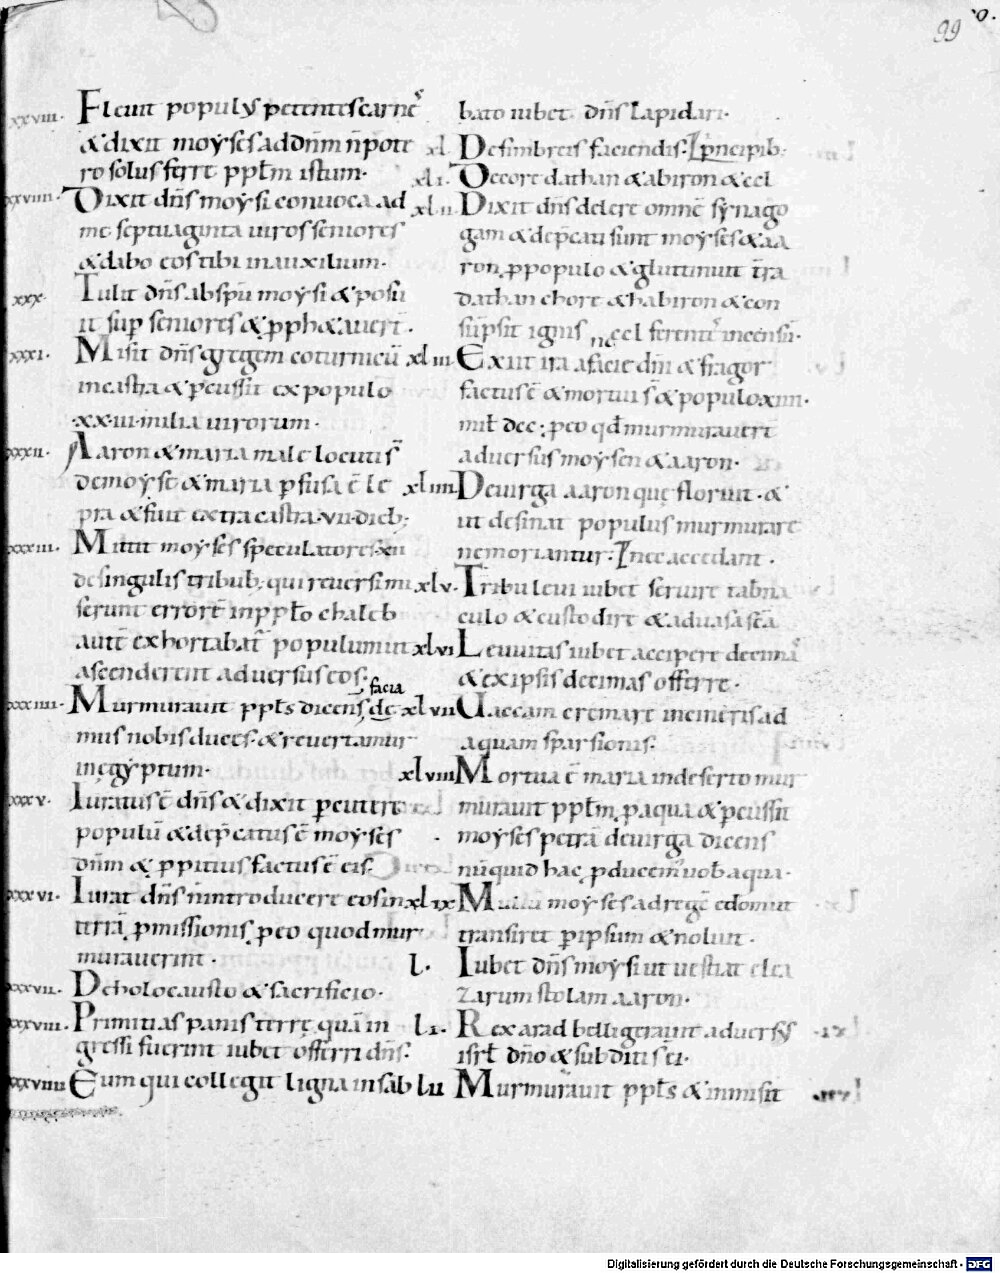 99
xxviii. Fleuit populus petentes carnē
& dixit moẏses ad dn̄m n̄ pote
ro solus ferre ppłm istum.
xxviiii. Dixit dn̄s moẏsi conuoca ad
me septuaginta uiros seniores
& dabo eos tibi in auxilium.
xxx. Tulit dn̄s ab sp̄u moẏsi & posu
it sup̄ seniores & p̱ph&auer̄.
xxxi. Misit dn̄s gregem coturnicū
in castra & p̱cussit ex populo
.xx.iii. milia uirorum.
xxxii. Aaron & maria male locuti s̄
de moẏse & maria p̱fusa ē le
pra & fuit extra castra .vii. dieb;
xxxiii. Mittit moẏses speculatores .xii
de singulis tribub; qui reuersi mi
serunt errorē in ppło chaleb
aut̄ exhortabat̄ populum ut
ascenderent aduersus eos.
facia
xxxiiii. Murmurauit ppłs dicens de
mus nobis duces. & reuertamur
in egẏptum.
xxxv. Iuratus ē dn̄s & dixit p̱cutere
populū & dep̄catus ē moẏses
dn̄m & p̱pitius factus ē eis.
xxxvi. Iurat dn̄s n̄ introducere eos in
terrā p̱missionis p̱ eo quod mur
murauerint.
xxxvii. De holocausto & sacrificio.
xxxviii. Primitias panis terrę quā in
gressi fuerint iubet offerri dn̄s.
xxxviiii Eum qui collegit ligna in sab
bato iubet dn̄s lapidari.
xl. De fimbreis faciendis. In p̄ncipib;
xli. De core dathan & abiron & cel
xlii. Dixit dn̄s delere omnē sẏnago
gam & dep̄cati sunt moẏses & aa
ron p̱ populo & gluttiuit t̄ra
dathan chore & habiron & con
sūpsit ignis .cel ferentē incensū.
xliii Exiit ira a facie dn̄i & fragor
factus ē & mortui s̄ & populo xiiii.
mił dcc. p̱ eo qd̄ murmurauer̄t
aduersus moẏsen & aaron.
xliiii De uirga aaron quę floruit. &
ut desinat populus murmurare
ne moriantur. In ee accedant.
xlv. Tribu leui iubet seruire tab̄na
culo & custodire & ad uasa s̄c̄a
xlvi Leuuitas iubet accipere decimā
& ex ipsis decimas offerre.
xlvii Uaccam cremare in cineris ad
aquam sparsionis.
xlviii Mortua ē maria in deserto mur
murauit ppłm p̱ aqua & p̱cussit
moẏses petrā de uirga dicens
nūquid hac p̱ducem̄ uob̄ aqua.
xlix Misit moẏses ad regē edom ut
transiret p̱ ipsum & noluit.
l. Iubet dn̄s moẏsi ut uestiat elea
zarum stolam aaron.
li. Rex arad belligerauit aduersus
isrł dn̄o & subditi s̄ ei.
lii Murmurauit ppłs & inmisit
Digitalisierung gefördert durch die Deutsche Forschungsgemeinschaft - DFG